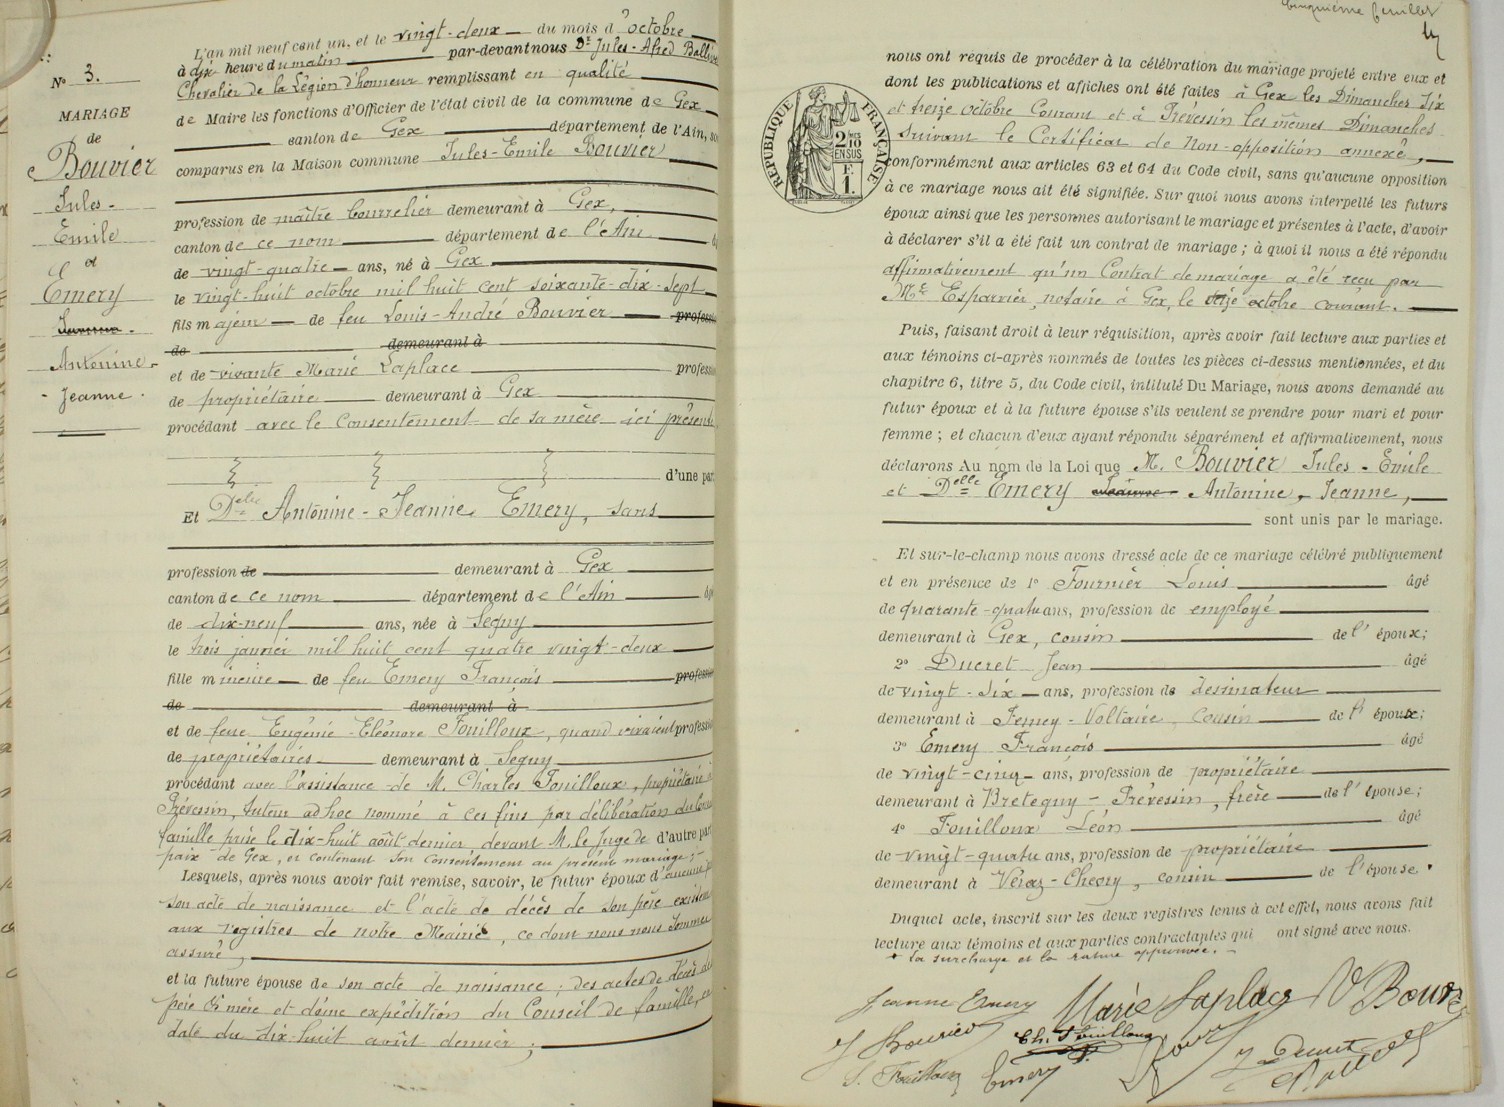 N° 3.
MARIAGE
de
Bouvier
Jules-
Emile
et
Emery
Antonine-
- Jeanne -
L'an mil neuf cent un, et le vingt-deux du mois d'octobre
à dix heure du matin par-devant nous Dr Jules-Alfred
Chevalier de la Légion d'honneur remplissant en qualité
de Maire les fonctions d'Officier de l'état civil de la commune de Gex
canton de Gex département de l'Ain,
comparus en la Maison commune Jules-Emile Bouvier
profession de maître bourrelier demeurant à Gex,
canton de ce nom département de l'Ain
de vingt-quatre ans, né à Gex
le vingt-huit octobre mil huit cent soixante-dix-sept
fils majeur de feu Louis-André Bouvier profession
de demeurant à
et de vivante Marie Laplace
de propriétaire demeurant à Gex
procédant avec le Consentement de sa mère ici présente
d'une part
Et Delle Antonine-Jeanne Emery, sans
profession de demeurant à Gex
canton de ce nom département de l'Ain
de dix-neuf ans, née à Segny
le trois janvier mil huit cent quatre vingt-deux
fille mineure de feu Emery François
de demeurant à
et de feue Eugénie-Eléonore Fouilloux, quand vivaient
de propriétaires demeurant à Segny
procédant avec l'assistance de M. Charles Fouilloux, propriétaire à
Prévessin, tuteur ad hoc nommé à ces fins par délibération du
famille prise le dix-huit août dernier, devant M. le Juge de d'autre part
paix de Gex, et contenant son consentement au présent mariage;
Lesquels, après nous avoir fait remise, savoir, le futur époux d'
son acte de naissance et l'acte de décès de son père
aux registres de notre Mairie, ce dont nous nous sommes
assuré,
et la future épouse de son acte de naissance; des actes de décès de
père & mère et d'une expédition du Conseil de famille, en
date du dix-huit août dernier;
Cinquième feuillet
nous ont requis de procéder à la célébration du mariage projeté entre eux et
dont les publications et affiches ont été faites à Gex les Dimanches six
et treize octobre Courant et à Prévessin les mêmes Dimanches
suivant le Certificat de Non-opposition annexé,
conformément aux articles 63 et 64 du Code civil, sans qu'aucune opposition
à ce mariage nous ait été signifiée. Sur quoi nous avons interpellé les futurs
époux ainsi que les personnes autorisant le mariage et présentes à l'acte, d'avoir
à déclarer s'il a été fait un contrat de mariage; à quoi il nous a été répondu
affirmativement qu'un Contrat de mariage a été reçu par
Me Esparvier, notaire à Gex, le seize octobre courant.
RÉPUBLIQUE FRANÇAISE
2/10
EN SUS
F.
1.
Puis, faisant droit à leur réquisition, après avoir fait lecture aux parties et
aux témoins ci-après nommés de toutes les pièces ci-dessus mentionnées, et du
chapitre 6, titre 5, du Code civil, intitulé Du Mariage, nous avons demandé au
futur époux et à la future épouse s'ils veulent se prendre pour mari et pour
femme; et chacun d'eux ayant répondu séparément et affirmativement, nous
déclarons Au nom de la Loi que M. Bouvier Jules-Emile
et Delle Emery Antonine-Jeanne,
sont unis par le mariage.
Et sur-le-champ nous avons dressé acte de ce mariage célébré publiquement
et en présence de 1° Fournier Louis âgé
de quarante-quatre ans, profession de employé
demeurant à Gex, cousin de l'époux;
2° Ducret Jean âgé
de vingt-six ans, profession de dessinateur
demeurant à Ferney-Voltaire, cousin de l'époux;
3° Emery François âgé
de vingt-cinq ans, profession de propriétaire
demeurant à Bretegny-Prévessin, frère de l'épouse;
4° Fouilloux Léon âgé
de vingt-quatre ans, profession de propriétaire
demeurant à Véraz-Chevry, cousin de l'épouse.
Duquel acte, inscrit sur les deux registres tenus à cet effet, nous avons fait
lecture aux témoins et aux parties contractantes qui ont signé avec nous.
+ la surcharge et la rature approuvée.
Jeanne Emery Marie Laplace
J Bouvier Ch. Fouilloux
Emery J Ducret